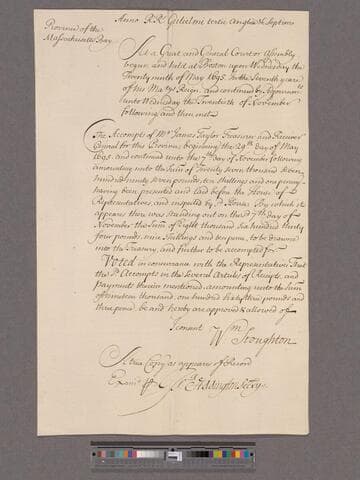 Anno R. Rs. Gulielmi tertii Angliæ &c Septimo
Province of the
Massachusetts Bay
At a Great and General Court or Assembly
begun and held at Boston upon Wednesday the
Twenty ninth of May 1695. In the Seventh yeare
of his Matys Reign. And continued by Adjournmts
unto Wednesday the Twentieth of November
following and then met.
The Accompts of Mr James Taylor Treasurer and Receiver
General for this Province, beginning the 29th day of May
1695. and continued unto the 7th day of November following
amounting unto the Sum of Twenty seven thousand Seven
hundred ninety seven pounds, ten shillings and one penny
having been presented and laid before the House of
Representatives, and inspected by sd House. By which it
appears there was standing out on the sd 7th day of
November the Sum of Eight thousand six hundred thirty
four pounds, nine Shillings and ten pence, to be drawn
into the Treasury, and further to be accompted for
Voted in concurrance with the Representatives That
the sd Accompts in the several Articles of Receipts, and
payments therein mentioned, amounting unto the Sum
of nineteen thousand, one hundred sixty three pounds and
three pence, be and hereby are approved & allowed of
Wm Stoughton
A true Copy as appears of Record
Examd
Addington Secry.